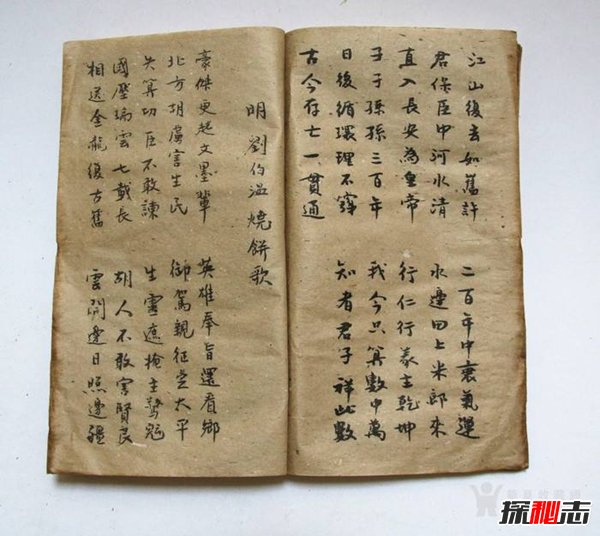 江山復去如舊許 二百年中衰氣運
君保臣中河水清 水邊田上米郎來
直入長安為皇帝 行仁行義主乾坤
子子孫孫三百年 我今只算數中萬
日後循環理不窮 知者君子祥此數
古今存亡一貫通
明 劉伯温燒餅歌
豪傑更起文墨輩 英雄奉旨還看鄉
北方胡虜害生民 御駕親征定太平
失算切臣不敢諫 生靈遮掩主驚魂
國壓瑞雲七載長 胡人不敢害賢良
相送金龍復古舊 雲開邊日照邊疆
探秘志